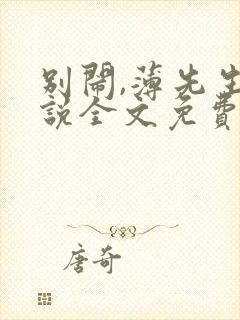 别闹,薄先生
説全文免費
唐奇